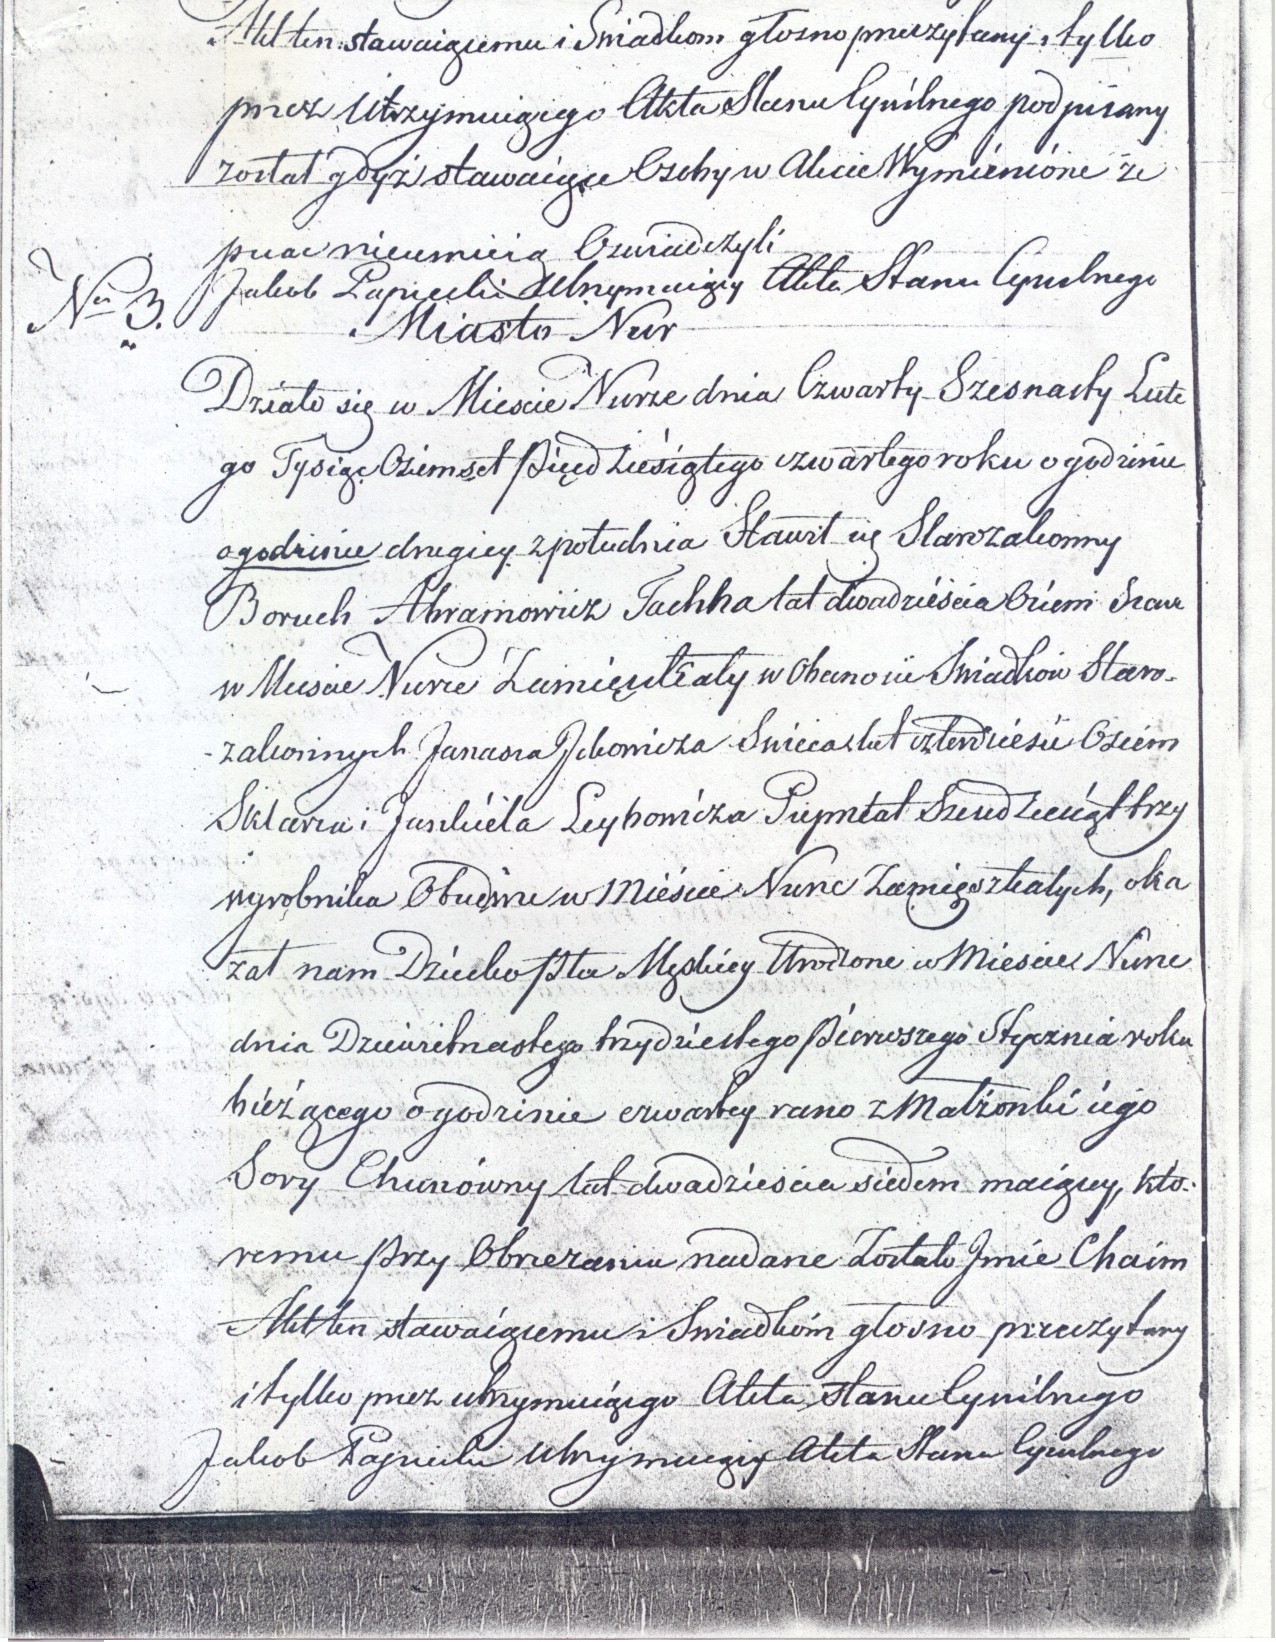 Akt ten stawaiącemu i Świadkom głosno przeczytany, i tylko
przez Utrzymuiącego Akta Stanu Cywilnego podpisany
został gdyż stawaiące Osoby w Akcie Wymienióne że
pisac nieumieią Oswiadczyli
Jakob Utrzymuiący Akta Stanu Cywilnego
Nr 3.
Miasto Nur
Działo się w Miescie Nurze dnia Czwarty Szesnasty Lute
go Tysiąc Ośmset Pięcdziesiątego czwartego roku o godzinie
ogodzinie drugiey z południa Stawił się Starozakonny
Boruch Abramowicz lat dwadzieścia Ośiem
w Miescie Nurze Zamięszkały w Obecnosci Świadków Staro-
-zakonnych Jcbowicza lat czterdziesci Osiem
Sklarza i Jankiela Leybowicza lat trzy
wyrobnika Obudwu w Mieście Nurze Zamięszkałych, oka
zał nam Dziecko Płci Męskiey Urodzone w Miescie Nurze
dnia Dziewietnastego trzydziestego Pierwszego Stycznia roku
bieżącego o godzinie czwartey rano z Małżonki iego
Sory Chunówny lat dwadziescia siedem maiącey, któ-
remu przy Obrzezaniu nadane Zostało Jmie Chaim
Akt ten stawaiącemu i Swiadkóm głosno przeczytany
i tylko przez utrzymuiącego Akta Stanu Cywilnego
Jakob Utrzymuiący Akta Stanu Cywilnego